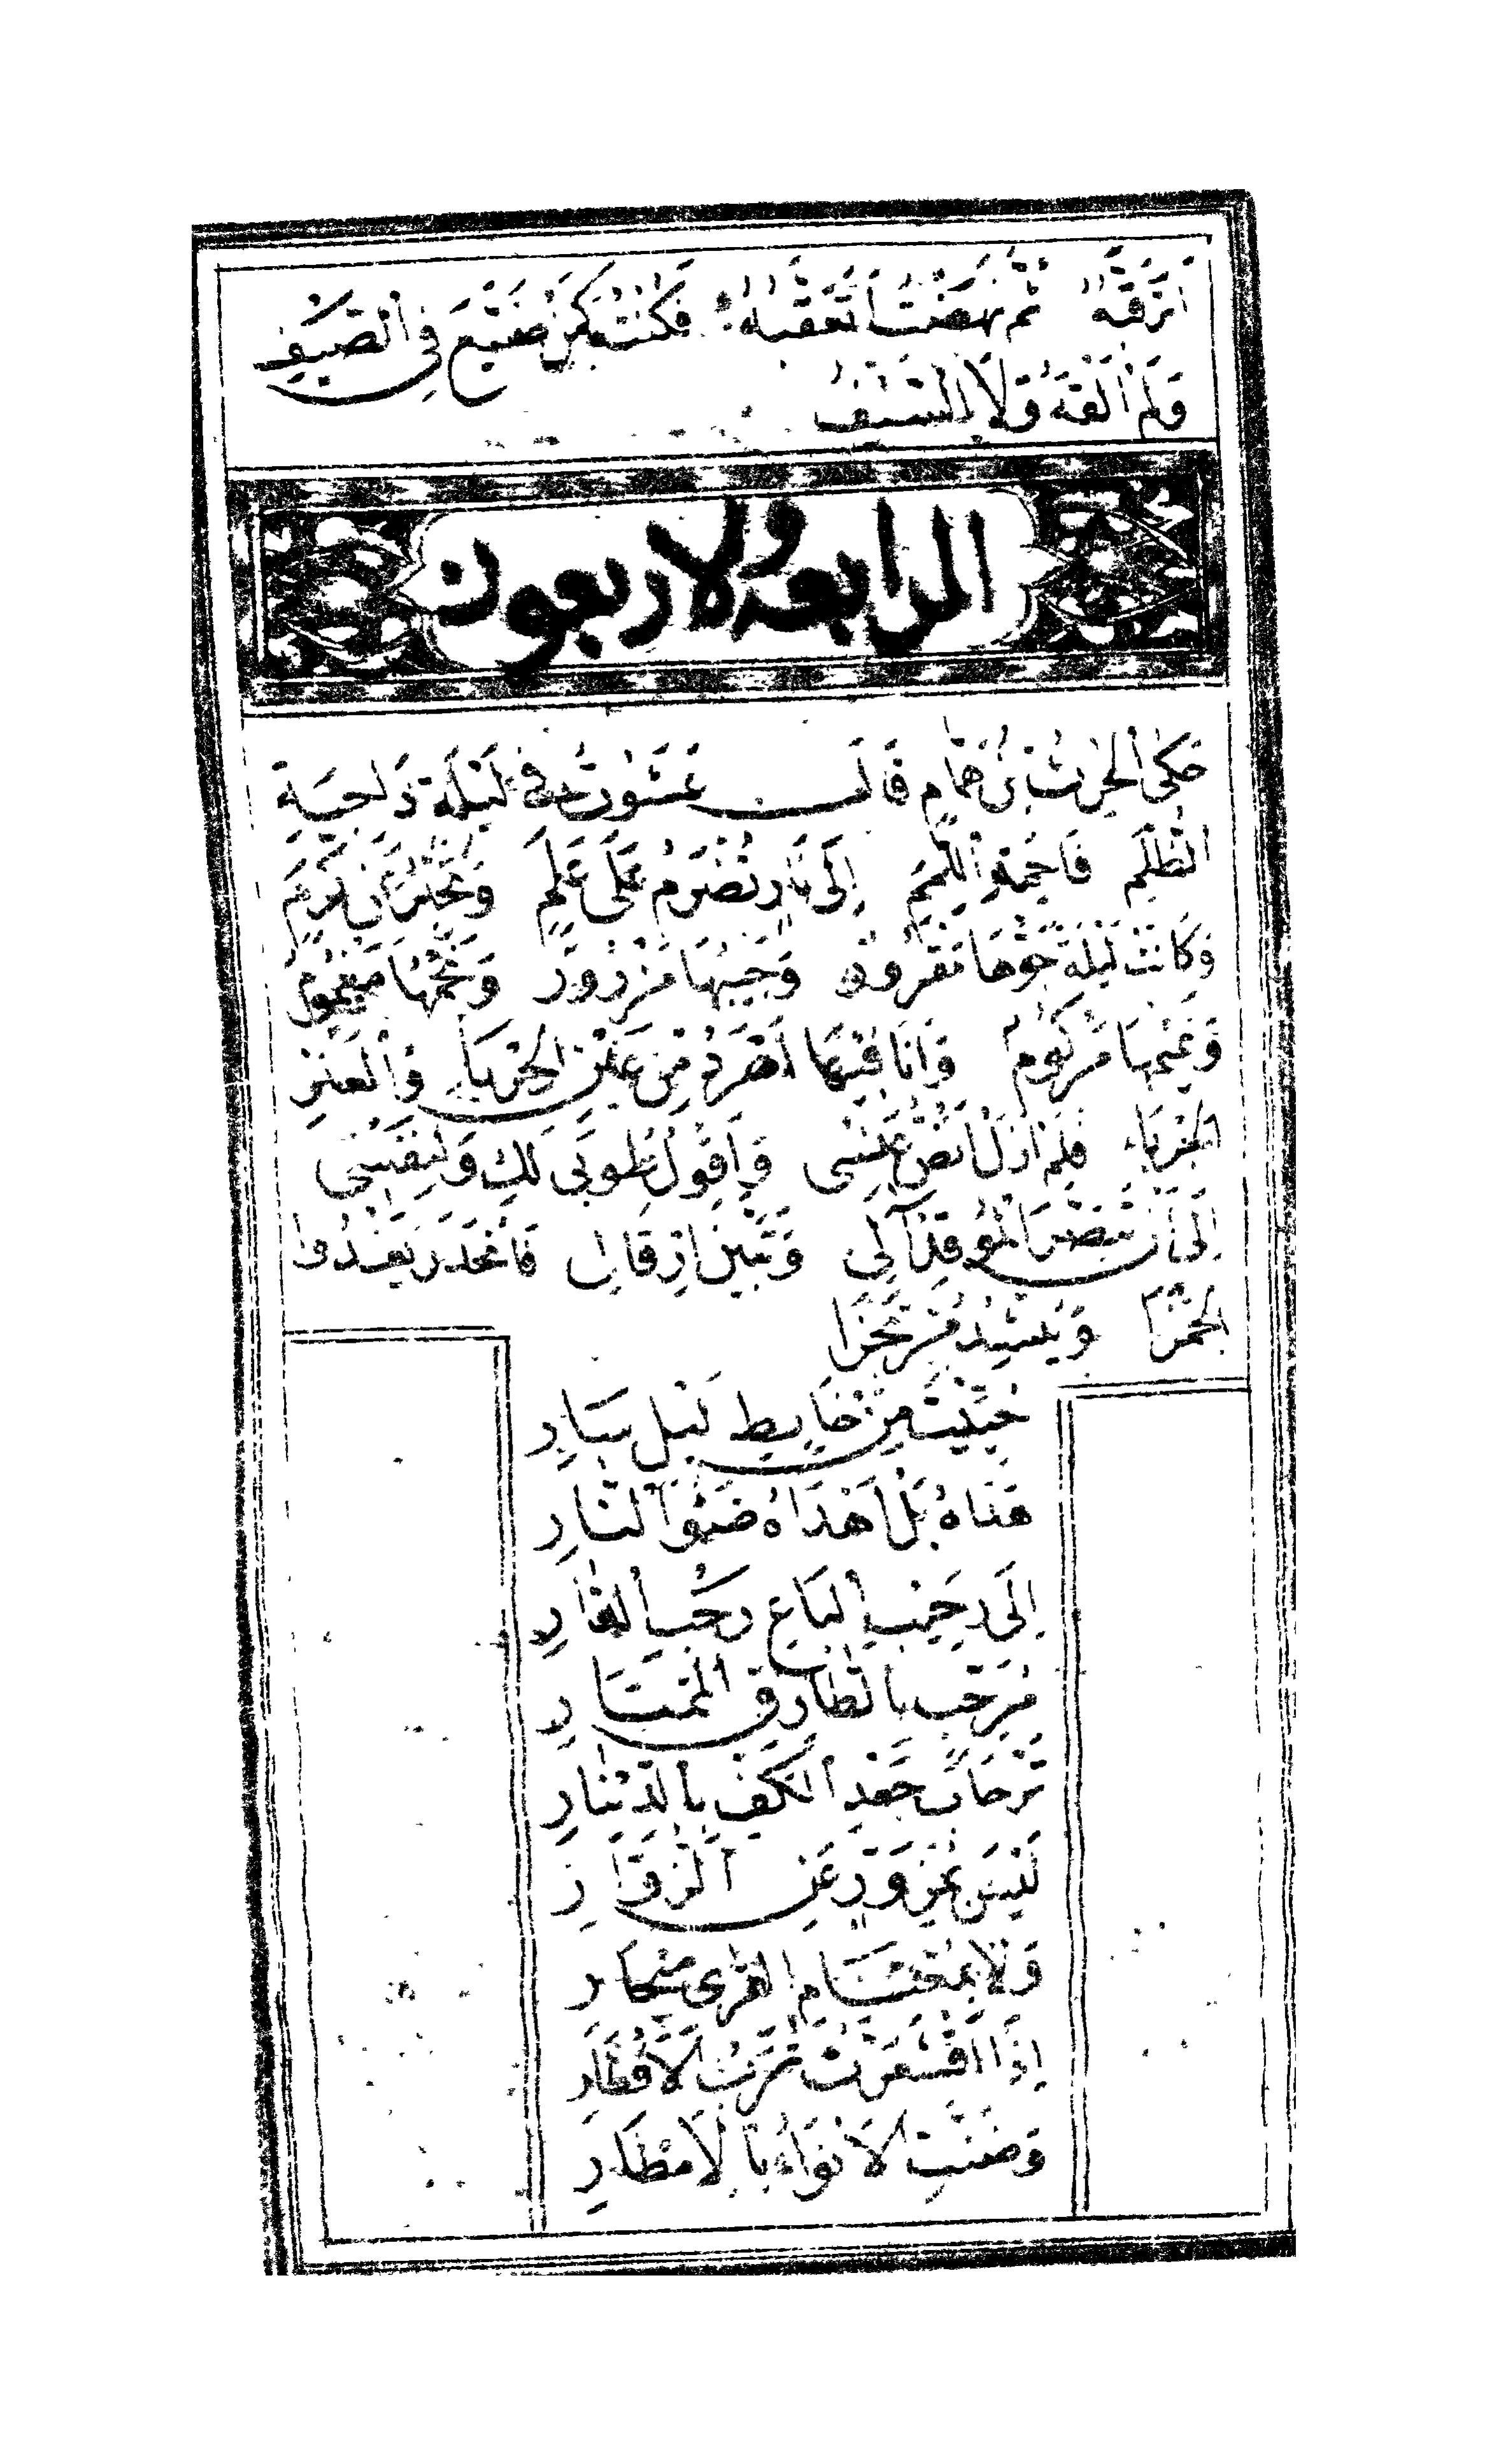 أَتَرَقَّبُهُ ثُمَّ نَهَضْتُ أَتَعَقَّبُهُ فَكُنْتُ كَمَنْ ضَيَّعَ فِي الصَّيْفِ
وَلَمْ أَلْقَهُ وَلَا السَّيْفَ
الرابعه والاربعون
حَكَى الْحَرِثُ بْنُ هَمَّامٍ قَالَ عَشَوْتُ فِي لَيْلَةٍ دَاجِيَةِ
الظُّلَمِ فَاحِمَةِ اللِّمَمِ إِلَى نَارٍ تُضْرَمُ عَلَى عَلَمٍ وَتُخْبِرُ عَنْ كَرَمٍ
وَكَانَتْ لَيْلَةً جَوُّهَا مَقْرُورٌ وَجَيْبُهَا مَزْرُورٌ وَنَجْمُهَا مَغْمُومٌ
وَغَيْمُهَا مَرْكُومٌ وَأَنَا فِيهَا أَصْرَدُ مِنْ عَيْنِ الْحِرْبَا وَالْعَنْزِ
الْجَرْبَاءِ فَلَمْ أَزَلْ أَنُصُّ عَنْسِي وَأَقُولُ طُوبَى لَكِ وَلِنَفْسِي
إِلَى أَنْ تَبَصَّرَ الْمُوقِدُ آلِي وَتَبَيَّنَ إِرْقَالِي فَانْحَدَرَ يَعْدُوا
الْجَمَزَى وَيُنْشِدُ مُرْتَجِزَا
حُيِّيتَ مِنْ خَابِطِ لَيْلٍ سَارِ
هَدَاهُ بَلْ أَهْدَاهُ ضَوْءُ النَّارِ
إِلَى رَحِيبِ الْبَاعِ رَحْبِ الدَّارِ
مُرَحِّبٍ بِالطَّارِقِ الْمُمْتَارِ
تَرْحَابَ جَعْدِ الْكَفِّ بِالدِّينَارِ
لَيْسَ بِمُزْوَرٍّ عَنِ الزُّوَّارِ
وَلَا بِمِعْتَامِ الْقِرَى مِئْخَارِ
إِذَا اقْشَعَرَّتْ تُرَبُ الْأَقْطَارِ
وَضَنَّتِ الْأَنْوَاءُ بِالْأَمْطَارِ